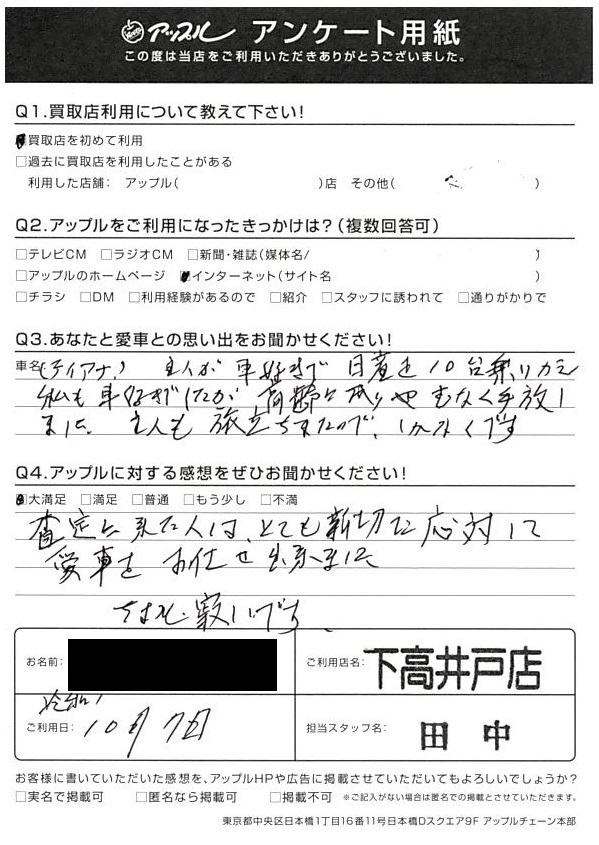 アップル アンケート用紙
この度は当店をご利用いただきありがとうございました。
Q1.買取店利用について教えて下さい!
買取店を初めて利用
□過去に買取店を利用したことがある
利用した店舗: アップル( )店 その他( )
Q2.アップルをご利用になったきっかけは?(複数回答可)
□テレビCM □ラジオCM □新聞・雑誌(媒体名/ )
□アップルのホームページ ■インターネット(サイト名 )
□チラシ □DM □利用経験があるので □紹介 □スタッフに誘われて □通りがかりで
Q3.あなたと愛車との思い出をお聞かせください!
車名(ティアナ) 主人が車好きで 日産を10台乗りかえ
私も車好きでしたが高齢になりやむなく手放し
ました。主人も旅立ちましたので、しかたなくです
Q4.アップルに対する感想をぜひお聞かせください!
■大満足 □満足 □普通 □もう少し □不満
査定に来た人は、とても親切な応対して
愛車をお任せ出来ました
でも寂しいです、
お名前:
ご利用店名: 下高井戸店
ご利用日: 10月7日
担当スタッフ名: 田中
お客様に書いていただいた感想を、アップルHPや広告に掲載させていただいてもよろしいでしょうか?
□実名で掲載可 □匿名なら掲載可 □掲載不可 ※ご記入がない場合は匿名での掲載とさせていただきます。
東京都中央区日本橋1丁目16番11号日本橋Dスクエア9F アップルチェーン本部